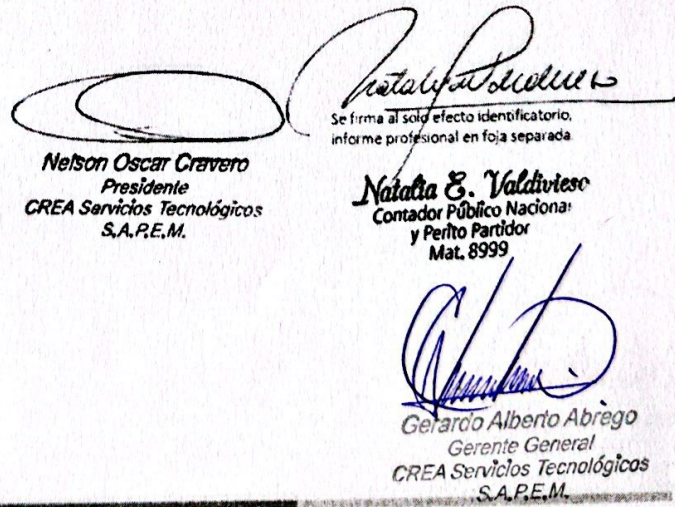 Nelson Oscar Cravero
Presidente
CREA Servicios Tecnológicos
S.A.P.E.M.
Se firma al solo efecto identificatorio,
informe profesional en foja separada
Natalia E. Valdivieso
Contador Público Nacional
y Perito Partidor
Mat. 8999
Gerardo Alberto Abrego
Gerente General
CREA Servicios Tecnológicos
S.A.P.E.M.